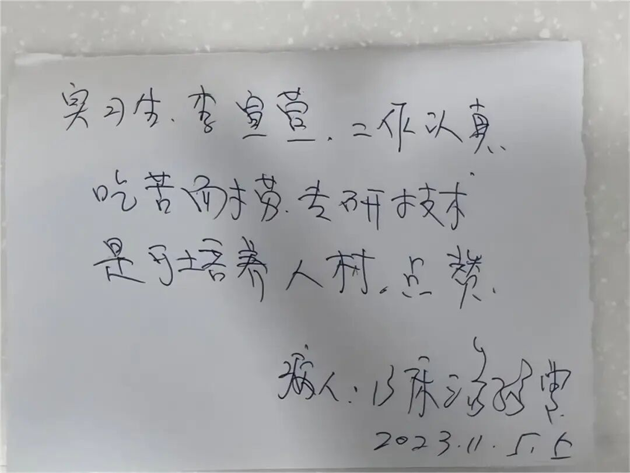 实习生、李宣营、工作认真、
吃苦耐劳、专研技术
是可培养人材。点赞、
病人:15床
2023.11.5.